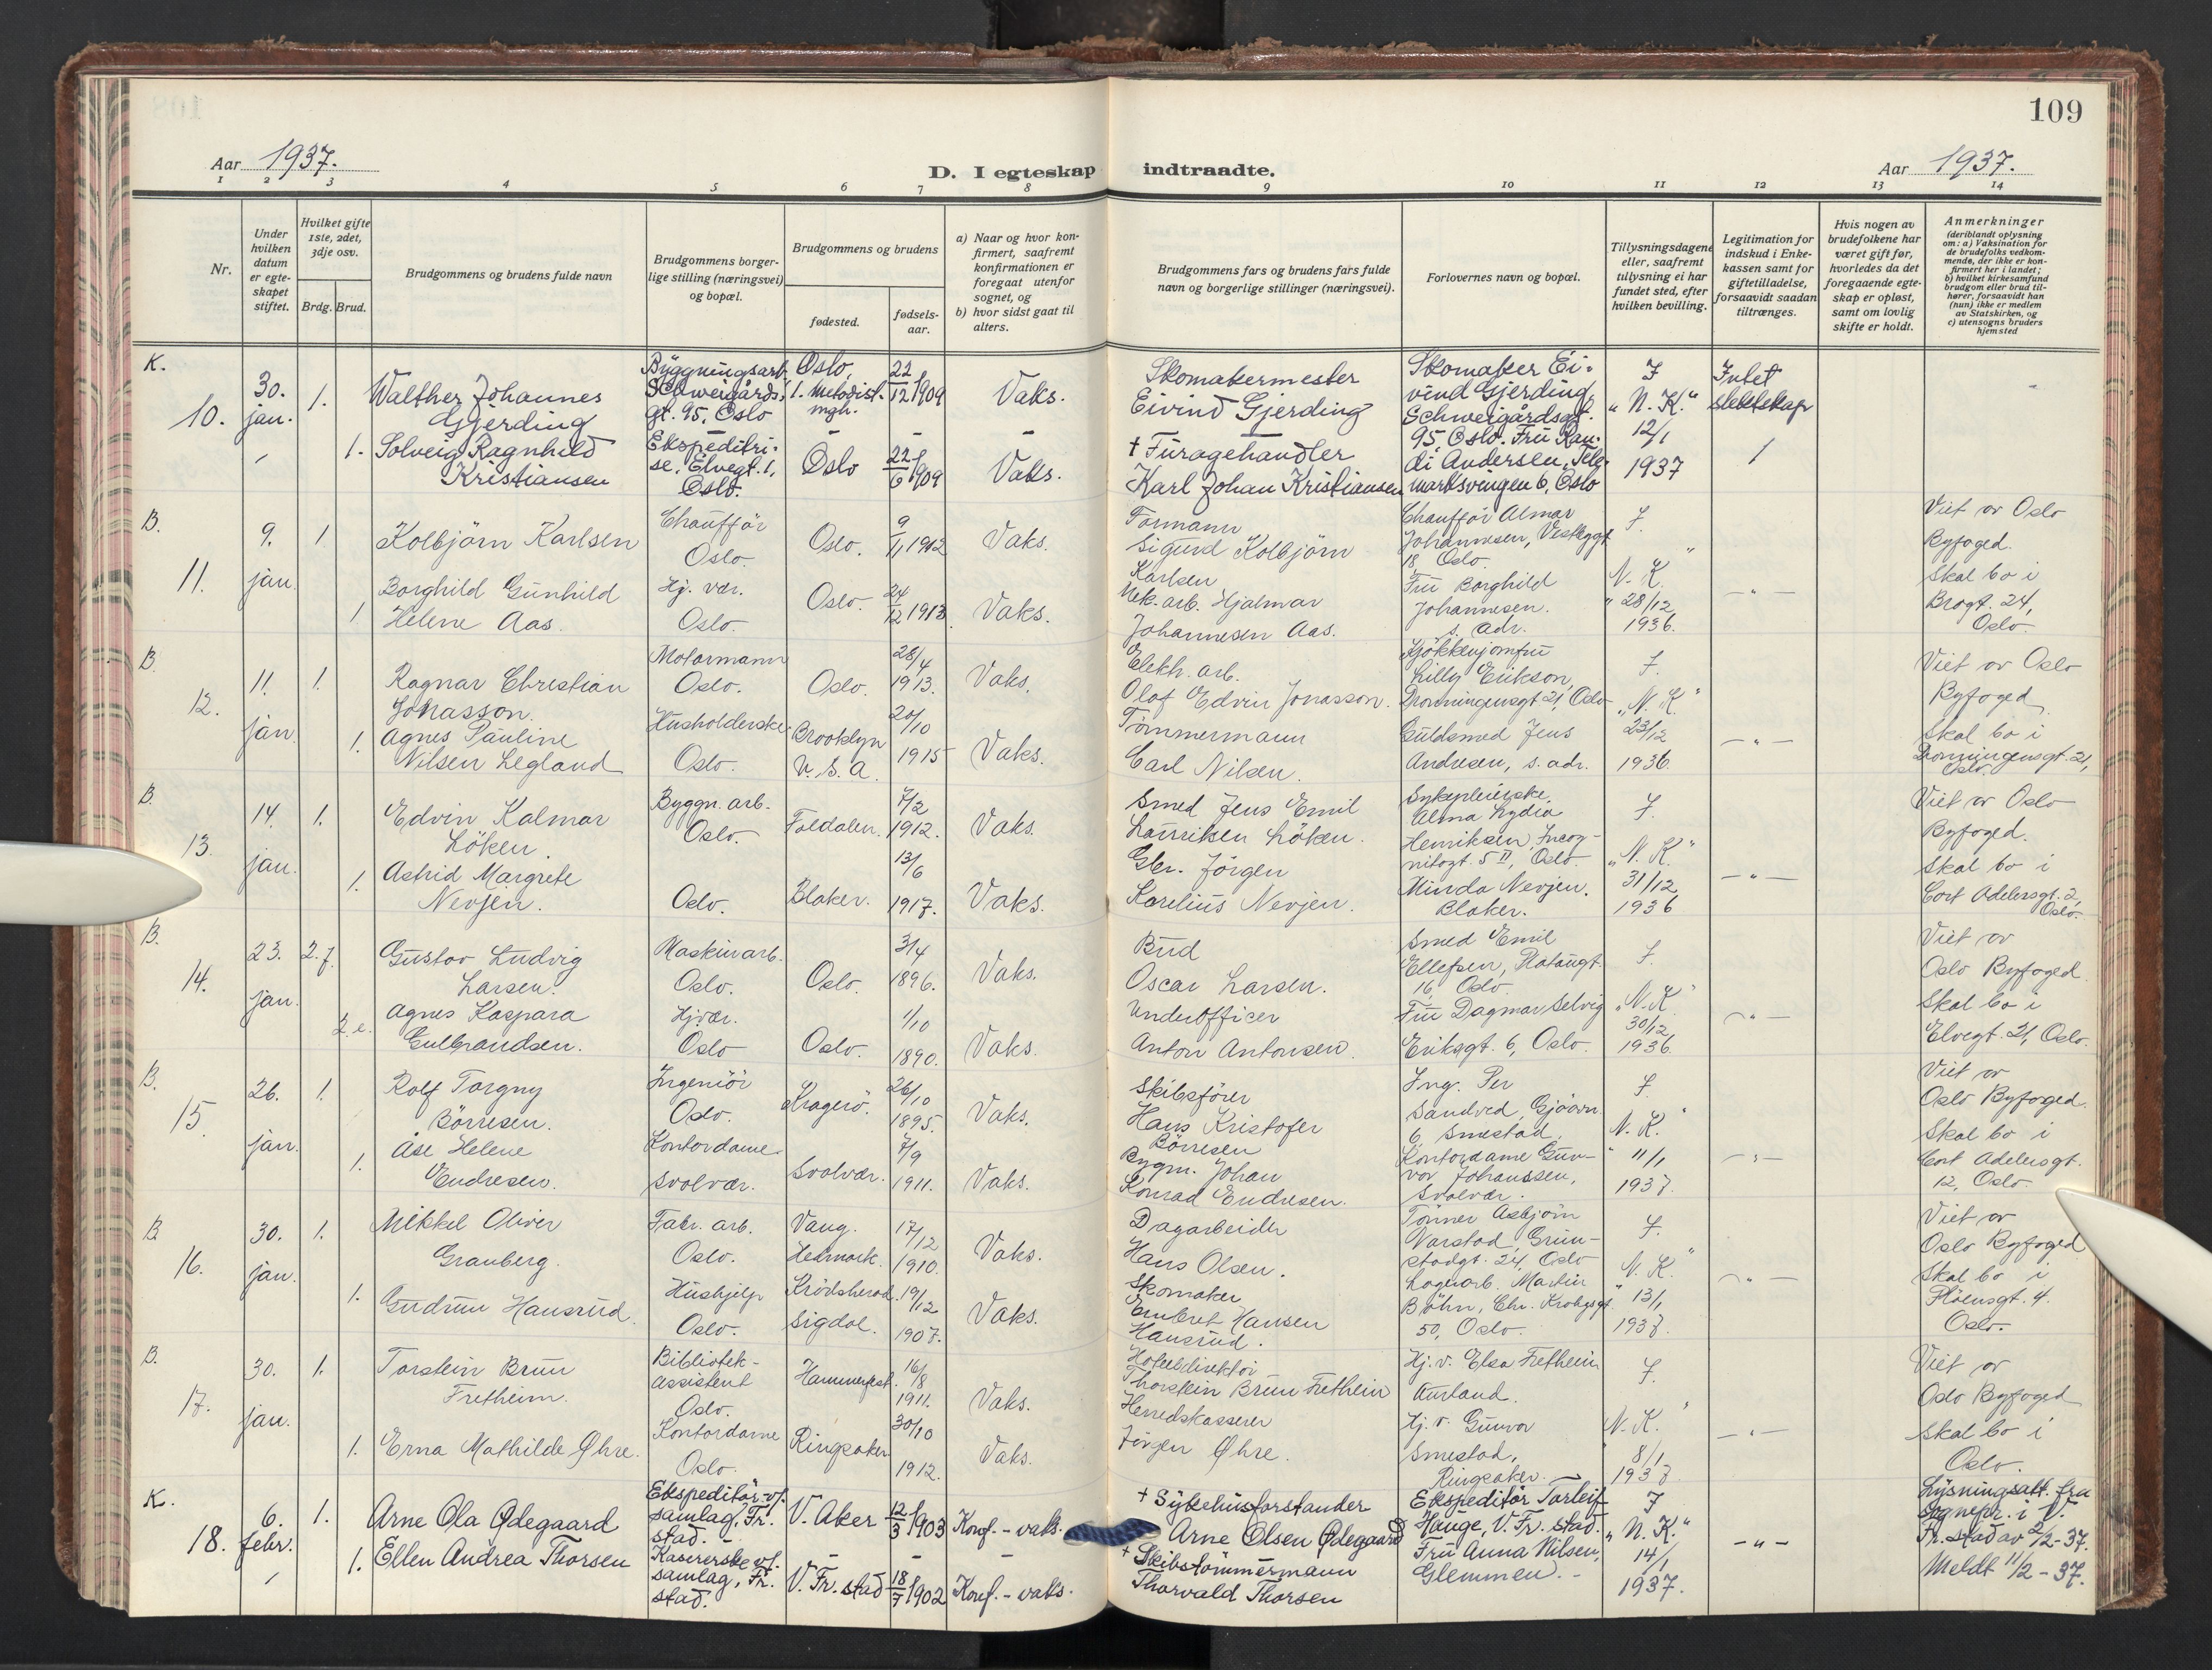 109
Aar 1937.
D. I egteskap indtraadte.
Aar 1937.
1 2 3 4 5 6 7 8 9 10 11 12 13 14
Nr.
Under hvilken datum er egteskapet stiftet.
Hvilket gifte 1ste, 2det, 3dje osv.
Brdg. Brud.
Brudgommens og brudens fulde navn
Brudgommens borger-
lige stilling (næringsvei)
og bopæl.
Brudgommens og brudens
fødested.
fødsels-
aar.
a) Naar og hvor kon-
firmert, saafremt
konfirmationen er
foregaat utenfor
sognet, og
b) hvor sidst gaat til
alters.
Brudgommens fars og brudens fars fulde
navn og borgerlige stillinger (næringsvei).
Forlovernes navn og bopæl.
Tillysningsdagene
eller, saafremt
tillysning ei har
fundet sted, efter
hvilken bevilling.
Legitimation for
indskud i Enke-
kassen samt for
giftetilladelse,
forsaavidt saadan
tiltrænges.
Hvis nogen av
brudefolkene har
været gift før,
hvorledes da det
foregaaende egte-
skap er opløst,
samt om lovlig
skifte er holdt.
Anmerkninger
(deriblandt oplysning
om: a) Vaksination for
de brudefolks vedkom-
mende, der ikke er kon-
firmert her i landet;
b) hvilket kirkesamfund
brudgom eller brud til-
hører, forsaavidt han
(hun) ikke er medlem
av Statskirken, og
c) utensogns bruders
hjemsted
K.
10.
30. jan.
1.
Walther Johannes
Gjerding
Byggningsarb.
Schweigårds-
gt. 95, Oslo
Oslo,
1. Metodist-
mgh.
22/12 1909
Vaks.
Skomakermester
Eivind Gjerding
Skomaker Ei-
vind Gjerding,
Schweigårdsgt.
95 Oslo. Fru Ran-
di Andersen, Tele-
marksvingen 6, Oslo
F
"N.K."
12/1
1937
Intet
slektskap
1.
Solveig Ragnhild
Kristiansen
Ekspeditri-
se, Elvegt. 1,
Oslo.
Oslo
22/6 1909
Vaks.
+ Furagehandler
Karl Johan Kristiansen
B.
11.
9. jan.
1
Kolbjörn Karlsen
Chauffør
Oslo.
Oslo.
9/11 1912
Vaks.
Formann
Sigurd Kolbjörn
Karlsen
Chauffør Almar
Johannesen, Vestbygt
18 Oslo.
F.
N. K."
"28/12
1936.
- " -
Viet av Oslo
Byfoged.
Skal bo i
Brogt. 24,
Oslo.
1
Borghild Gunhild
Helene Aas.
Hj. vær.
Oslo.
Oslo.
24/12 1913.
Vaks.
Mek. arb. Hjalmar
Johannesen Aas.
Fru Borghild
Johannesen.
s. adr.
B.
12.
11. jan.
1.
Ragnar Christian
Jonasson.
Motormann
Oslo.
Oslo.
28/4
1913.
Vaks.
Elekh. arb.
Olof Edvin Jonasson.
Kjökkenjomfru
Lilly Erikson,
Dronningensgt 21, Oslo
F.
"N. K."
23/12
1936.
- " -
Viet av Oslo
Byfoged
Skal bo i
Dronningensgt. 21,
Oslo.
1.
Agnes Pauline
Nilsen Legland
Husholderske
Oslo.
Brooklyn
U. S. A.
20/10
1915
Vaks.
Tömmermann
Carl Nilsen.
Guldsmed Jens
Andresen, s. adr.
B.
13.
14. jan.
1.
Edvin Kalmar
Löken.
Byggn. arb.
Oslo.
Foldalen.
7/2
1912.
Vaks.
Smed Jens Emil
Lauritsen Löken.
Sykepleierske
Alma Lydia
Henriksen, Incog-
nitogt. 5 II, Oslo.
F.
"N. K."
31/12
1936
- " -
Viet av Oslo
Byfoged.
Skal bo i
Cort Adelersgt. 2,
Oslo.
1.
Astrid Margrete
Nevjen.
Oslo.
Blaker.
13/6
1917.
Vaks.
Gbr. Jörgen
Karelius Nevjen.
Minda Nevjen.
Blaker.
B.
14.
23. jan.
2. f.
Gustav Ludvig
Larsen.
Maskinarb.
Oslo.
Oslo.
3/4
1896.
Vaks.
Bud
Oscar Larsen.
Smed Emil
Ellefsen, Platougt.
16, Oslo
F.
"N. K"
30/12
1936.
- " -
Viet av
Oslo Byfoged
Skal bo i
Elvegt. 21, Oslo.
2. e.
Agnes Kaspara
Gulbrandsen.
Hj. vær.
Oslo
Oslo.
1/10
1890.
Vaks.
Underofficer
Anton Antonsen.
Fru Dagmar Selvig
Eriksgt. 6, Oslo.
B.
15.
26. jan.
1.
Rolf Torgny
Börresen.
Ingeniör
Oslo.
Kragerö.
26/10
1895.
Vaks.
Skibsförer
Hans Kristofer
Börresen
Ing. Per
Sandved
6, Smestad
F.
N. K."
" 11/1
1937.
- " -
Viet av
Oslo Byfoged.
Skal bo i
Cort Adelersgt.
12, Oslo
1.
Åse Helene
Endresen.
Kontordame
Svolvær.
Svolvær.
7/9
1911.
Vaks.
Bygm. Johan
Konrad Endresen.
Kontordame Gun-
vor Johanssen,
Svolvær.
B
16.
30. jan.
1.
Mikkel Oliver
Granberg.
Fabr. arb.
Oslo.
Vang.
Hedmark.
17/12
1910.
Vaks.
Dagarbeider
Hans Olsen.
Tönner Asbjörn
Narstad, Grün-
stadgt. 24, Oslo
F.
N. K."
" 13/1
1937.
- " -
Viet av
Oslo Byfoged
Skal bo i
Flöensgt. 4.
Oslo.
1.
Gudrun Hansrud.
Hushjelp
Oslo.
Krödsherad.
Sigdal.
19/12
1907.
Vaks.
Skomaker
Embret Hansen
Hansrud.
Lagerarb. Martin
Böhn, Chr. Krohgsgt
50, Oslo.
B.
17.
30. jan.
1.
Torstein Brun
Fretheim.
Bibliotek-
assistent
Oslo.
Hammerfest.
16/8
1911.
Vaks.
Hotelldirektör
Thorstein Brun Fretheim
Hj. v. Elsa Fretheim
Aurland.
F.
N. K."
" 8/1
1937
- " -
Viet av
Oslo Byfoged
Skal bo i
Oslo.
1.
Erna Mathilde Øhre.
Kontordame
Oslo.
Ringsaker
30/10
1912.
Vaks.
Herredskasserer
Jörgen Øhre.
Hj. v. Gunvor
Smestad,
Ringsaker.
K.
18.
6. febr.
1.
Arne Ola Ødegaard
Ekspeditör v/
samlag, Fr.
stad.
V. Aker
12/3 1903
Konf. - vaks.
+ Sykehusforstander
Arne Olsen Ødegaard
Ekspeditör Torleif
Hauge, V. Fr. stad.
F
"N. K."
14/1
1937.
- " -
Lysningsatt. fra
Sognepr. i V.
Fr. stad av 2/2-37.
Meldt 11/2 - 37.
1.
Ellen Andrea Thorsen
Kassererske v/
samlag, Fr.
stad.
V. Fr. stad
18/7 1902
Konf. - vaks.
+ Skibstömmermann
Thorvald Thorsen
Fru Anna Nilsen,
Glemmen. -